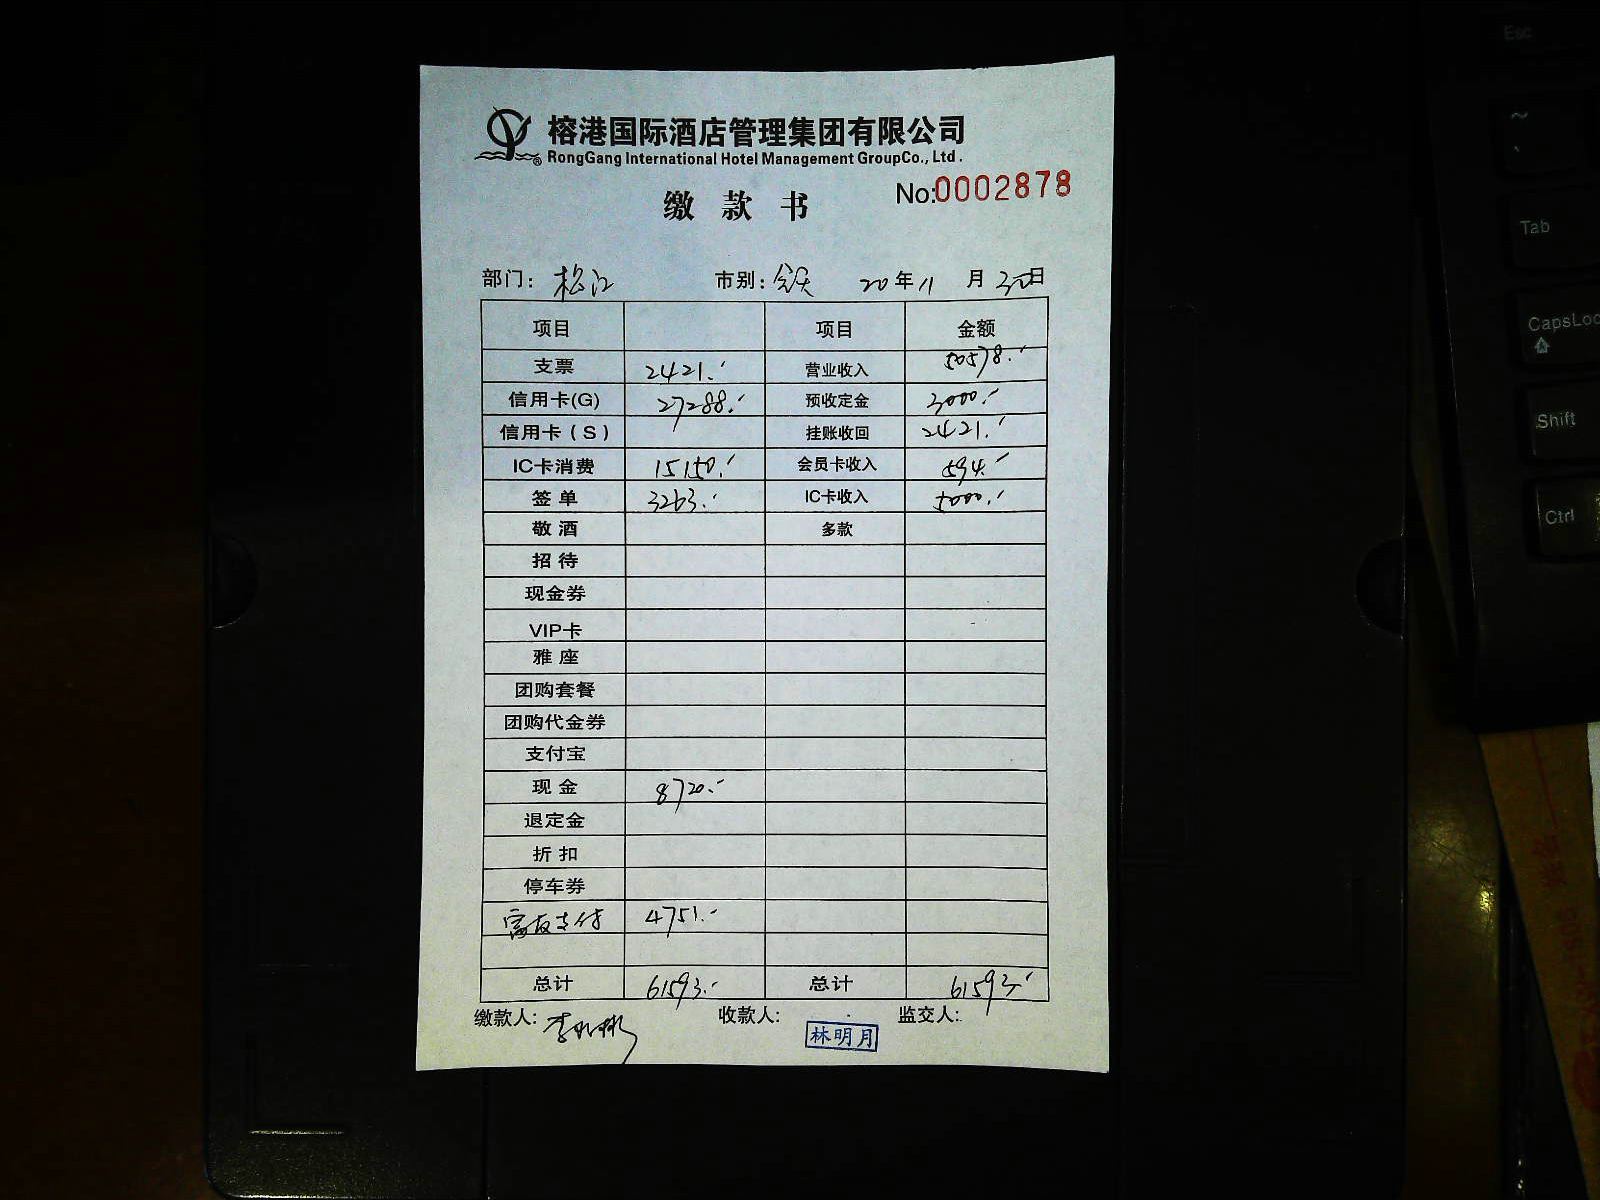 榕港国际酒店管理集团有限公司
RongGang International Hotel Management GroupCo., Ltd.
No:0002878
缴 款 书
部门: 松江 市别: 全天 20 年 11 月 30日
项目 项目 金额
支票 2421.- 营业收入 50578.-
信用卡(G) 27288.- 预收定金 3000.-
信用卡(S) 挂账收回 2421.-
IC卡消费 15150.- 会员卡收入 594.-
签 单 3263.- IC卡收入 5000.-
敬 酒 多款
招 待
现金券
VIP卡
雅 座
团购套餐
团购代金券
支付宝
现 金 8720.-
退定金
折 扣
停车券
富友支付 4751.-
总计 61593.- 总计 61593.-
缴款人: 收款人: 林明月 监交人:
Esc
~
Tab
CapsLoc
Shift
Ctrl